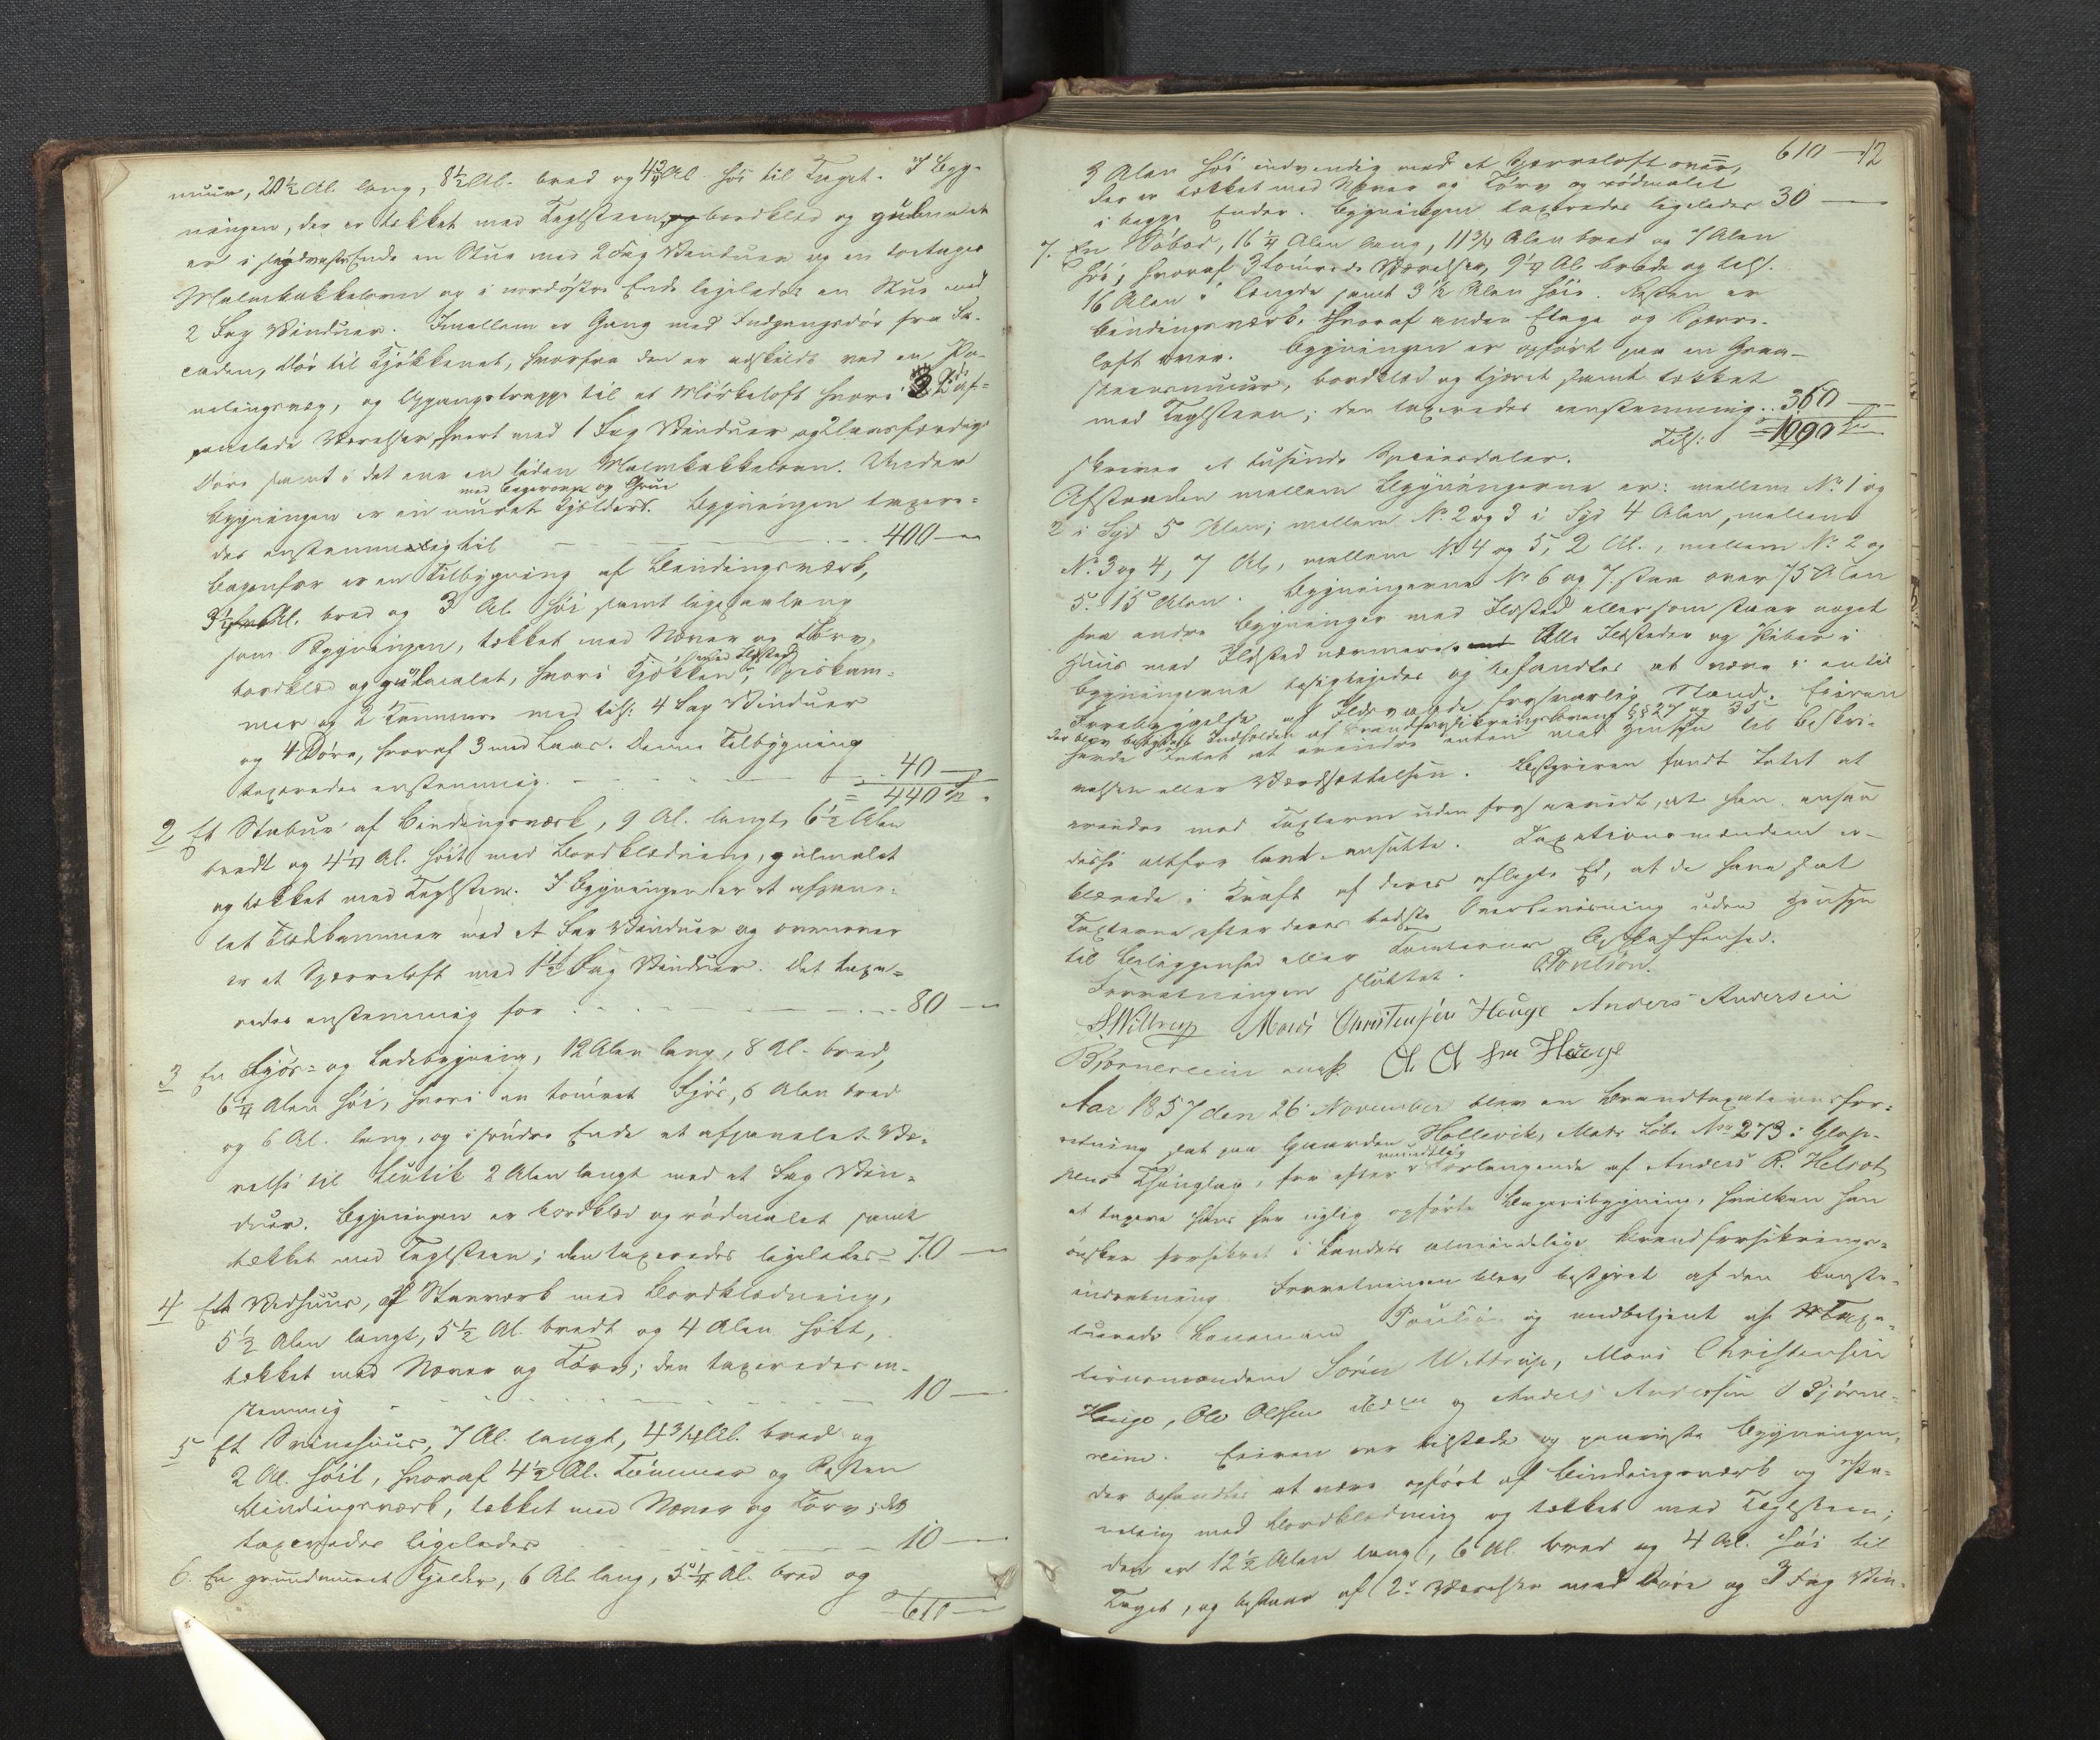 muur, 20½ Al. lang, 8½ Al. bred og 4¾ Al høi til Taget. I Byg-
ningen, der er tækket med Teglsteen, bordklæd og guulmalet
er i sydvestre Ende en Stue med 2 Fag Vinduer og en toetages
Malmkakkelovn og i nordøstre Ende ligeledes en Stue med
2 Fag Vinduer. Imellem er Gang med Indgangsdør fra Fa-
caden, Dør til Kjøkkenet, hvorfra den er adskildt ved en Pa-
nelingsvæg, og Opgangstrappe til et Mørkeloft hvori 2 af-
panelede Værelser, hvert med 1 Fag Vinduer og laasfærdige
Døre samt i det ene en liden Malmkakkelovn. Under
med Bagerovn og Grue
Bygningen er en muret Kjelder. Bygningen taxere-
des enstemmig til 400 —
Bagenfor er en Tilbygning af Bindingsværk,
3¼ Al. bred og 3 Al høi samt ligesaa lang
som Bygningen, tækket med Næver og Tørv,
med Ildsted
bordklæd og guulmalet, hvori Kjøkken, Spiskam-
mer og 2 Kammere med tils: 4 Fag Vinduer
og 4 Døre, hvoraf 3 med Laas. Denne Tilbygning
taxeredes enstemmig 40 —
= 440
2 Et Stabur af Bindingsværk, 9 Al. langt, 6½ Alen
bredt og 4¼ Al. høit med Bordklædning, gulmalet
og tækket med Teglsteen. I Bygningen er et afpane-
let Klædekammer med et Fag Vinduer og ovenover
er et Sperreloft med 1½ Fag Vinduer. Det taxe-
redes enstemmig for 80 —
3 En Fjøs- og Ladebygning, 12 Alen lang, 8 Al. bred,
6¼ Alen høi, hvori en tømret Fjøs, 6 Alen bred
og 6 Al. lang, og i søndre Ende et afpanelet Væ-
relse til Butik 2 Alen langt med et Fag Vin-
duer. Bygningen er bordklæd og rødmalet samt
tækket med Teglsteen; den taxeredes ligeledes 70 —
4 Et Vedhuus, af Stavværk med Bordklædning,
5½ Alen langt, 5½ Al. bredt og 4 Alen høit,
tækket med Næver og Tørv; den taxeredes en-
stemmig 10 —
5 Et Svinehuus, 7 Al. langt, 4¾ Al. bred og
2 Al. høit, hvoraf 4½ Al. Tømmer og Resten
Bindingsværk, tækket med Næver og Torv; det
taxeredes ligeledes 10 —
6. En grundmuret Kjelder, 6 Al. lang, 5¼ Al. bred og
610 —
610 — 12
3 Alen høi indvendig med et Sperreloft over,
der er tækket med Næver og Tørv og rødmalet
i begge Ender. Bygningen taxeredes ligeledes 30 —
7. En Søbod, 16¼ Alen lang, 11¾ Alen bred og 7 Alen
høi, hvoraf 3 tømrede Værelser, 9¼ Al brede og tils.
16 Alen i Længde samt 3½ Alen høie. Resten er
Bindingsværk, hvoraf anden Etage og Sperre-
loft over. Bygningen er opført paa en Graa-
steensmuur, bordklæd og tjæret samt tækket
med Teglsteen; den taxeredes enstemmig 360 —
Tils: = 1000
skriver et tusinde Speciedaler.
Afstanden mellem Bygningerne er: mellem No 1 og
2 i Syd 5 Alen; mellem No 2 og 3 i Syd 4 Alen, mellem
No 3 og 4, 7 Al, mellem No 4 og 5, 2 Al., mellem No 2 og
5. 15 Alen. Bygningerne No 6 og 7 staa over 75 Alen
fra andre Bygninger med Ildsted eller som staar noget
Huus med Ildsted nærmere. Alle Ildsteder og Piber i
Bygningerne besigtigedes og befandtes at være i en til
Forebyggelse af Ildsvaade forsvarlig Stand. Eieren
der blev bekjendt Indholden af Brandforsikringslovens §§ 27 og 35
havde Intet at erindre enten med Hensyn til Beskri-
velsen eller Værdsættelsen. Bestyreren fandt Intet at
erindre mod Taxterne uden forsaavidt, at han ansaa
disse altfor lavt ansatte. Taxationsmændene er-
klærede i Kraft af deres aflagte Ed, at de have sat
Taxterne efter deres bedste Overbeviisning uden Hensyn
til Beliggenhed eller Tomternes Beskaffenhed.
Forretningen sluttet. Poulson.
S Wiltrup Mons Christensen Houge Anders Andersen
Bjørnereim O O søn Houge
Aar 1857 den 26 November blev en Brandtaxationsfor-
retning sat paa Gaarden Hollevik, Matr Løbe No 273 i Glop-
mundtlig
pens Thinglag, for efter Forlangende af Anders R. Helvet
at taxere hans her nylig opførte Bageribygning, hvilken han
ønsker forsikret i Landets almindelige Brandforsikrings-
indretning. Forretningen blev bestyret af den konsti-
tuerede Lensmand Poulson og medbetjent af Taxa-
tionsmændene Søren Wiltrup, Mons Christensen
Houge, Ole Olsen ibdm og Anders Andersen Bjørne-
reim. Eieren var tilstede og paaviste Bygningen,
der befandtes at være opført af Bindingsværk og Pa-
neling med Bordklædning og tækket med Teglsteen;
den er 12½ Alen lang, 6 Al. bred og 4 Al. høi til
Taget, og bestaar af 2 Værelser med Døre og 3 Fag Vin-